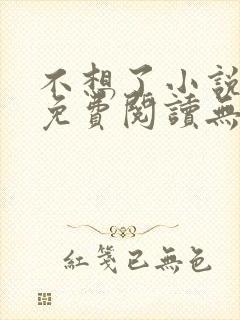 不想了小說
免費閱讀無
紅箋已無色